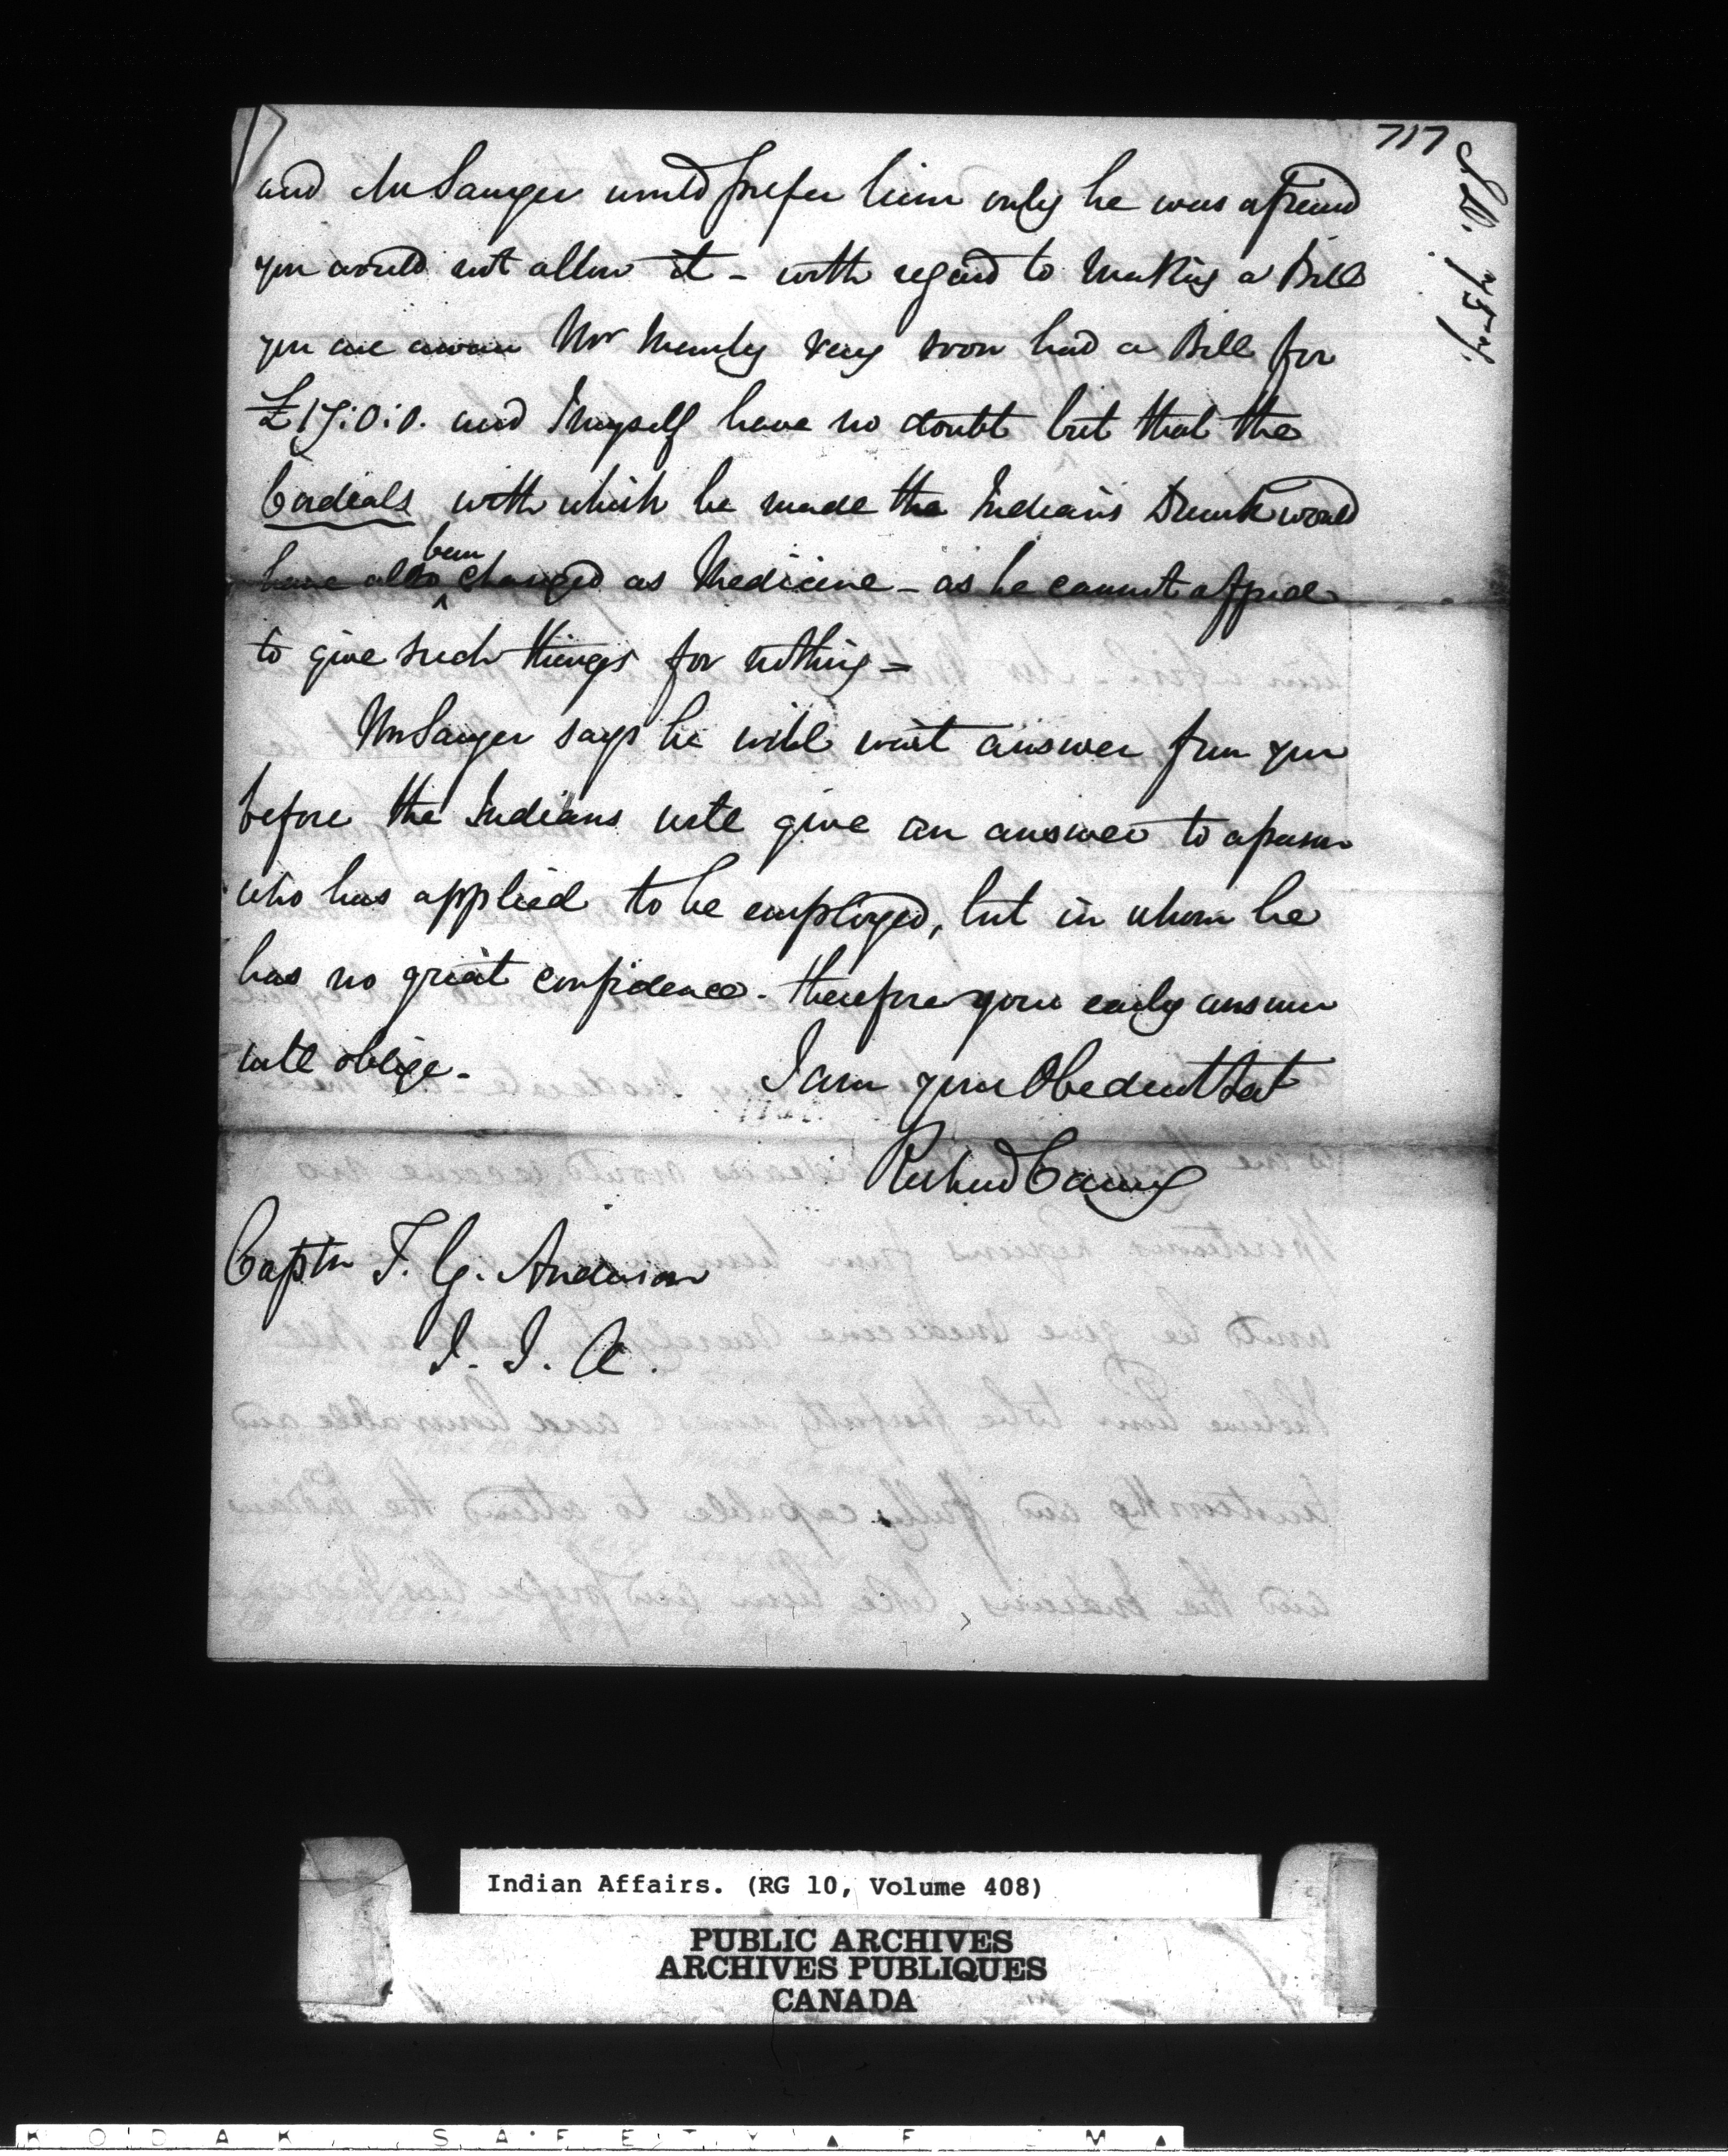 717
and Mr Sawyer would prefer him only he was afraid
you would not allow it - with regard to making a Bill
you are aware Mr Manly very soon had a Bill for
£17:0:0. and I myself have no doubt but that the
Cordials with which he made the Indians Drunk would
have also been charged as Medicine - as he cannot afford
to give such things for nothing -
Mr Sawyer says he will wait answer from you
before the Indians will give an answer to a person
who has applied to be employed, but in whom he
has no great confidence. therefore your early answer
will oblige -
I am your Obedient Svt
Richard
Captn T. G. Anderson
S. I. A.
Indian Affairs. (RG 10, Volume 408)
PUBLIC ARCHIVES
ARCHIVES PUBLIQUES
CANADA
KODAK SAFETY